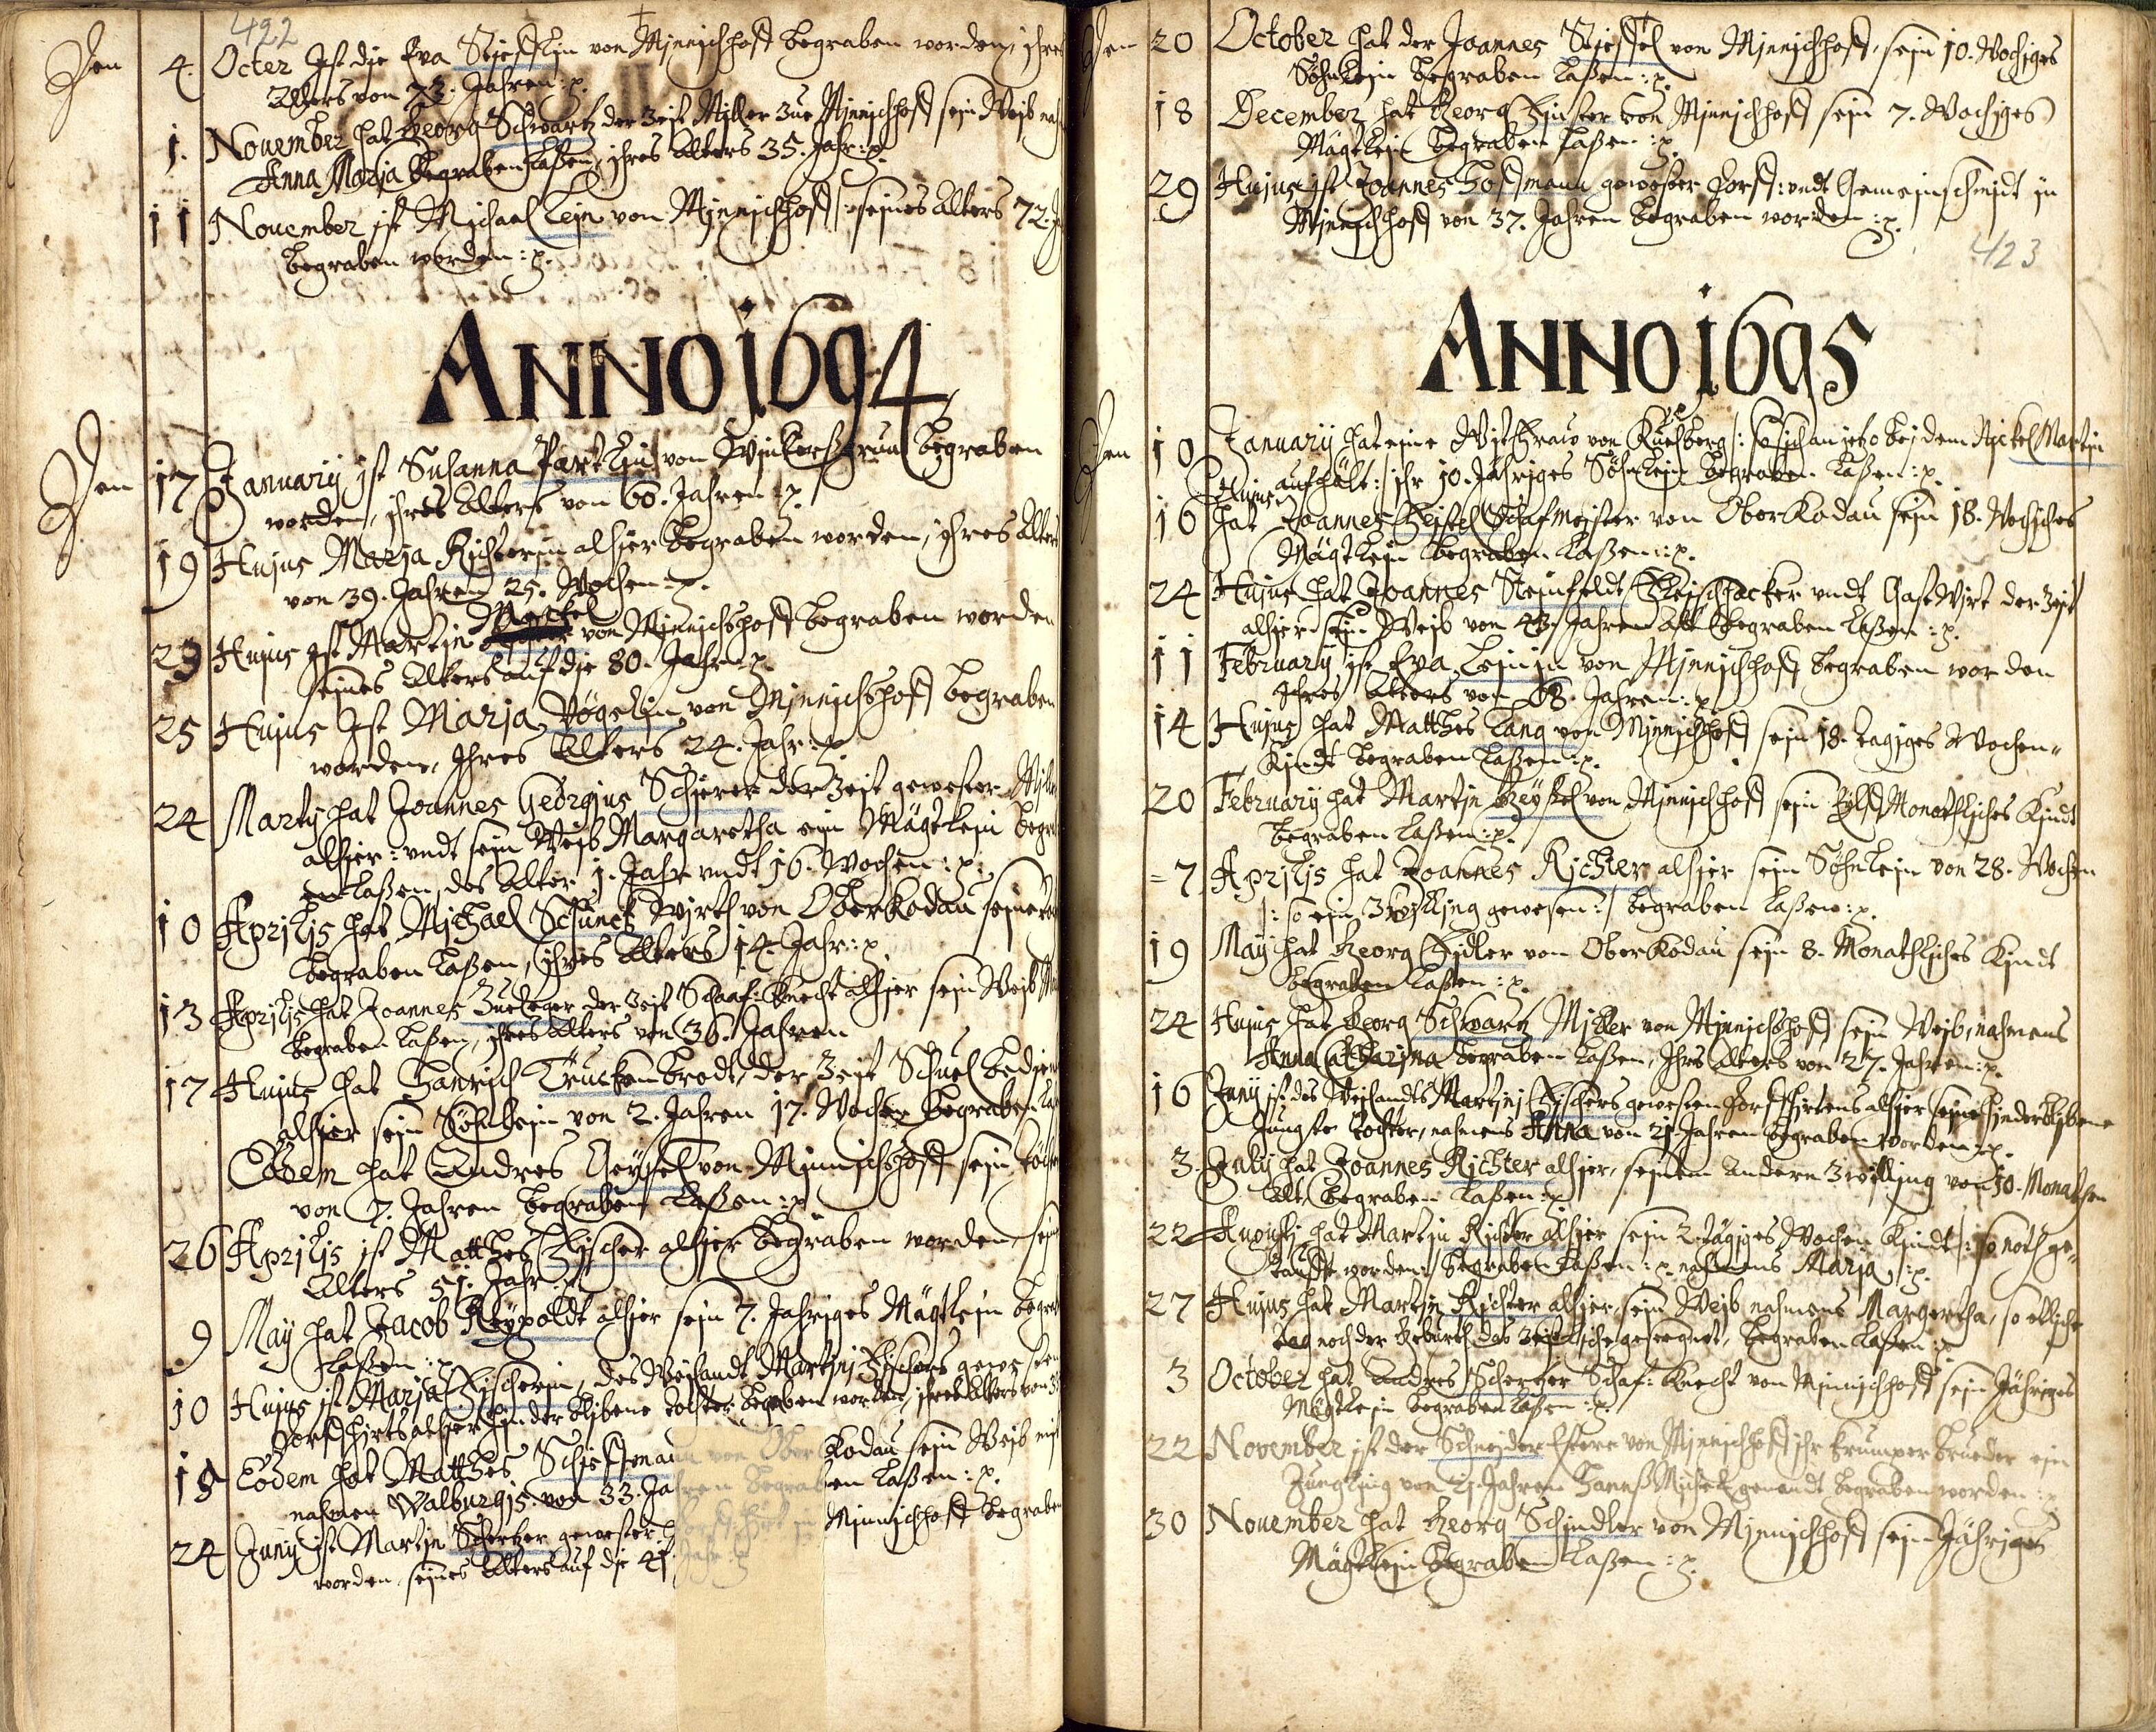 422
Den 4. Octer Ist die Eva Stiefflin von Minnichhoff begraben worden, ihres
Alters von 73. Jahren :p.
1. November hat Georg Schwartz der Zeit Miller Zue Minnichhoff sein Weib
Anna Maria begraben laßen, ihres Alters 35. Jahr :p.
11 November ist Michael Lein von Minnichhoff /: seines Alters 72.
begraben worden :p.
ANNO 1694
Den 17 January ist Susanna von begraben
worden, ihres Alters von 60. Jahren :p.
19 Hujus Maria Richterin alhier begraben worden, ihres Alters
von 39. Jahren 25. Wochen :p.
Mackel
23 Hujus Ist Martin von Minnichhoff begraben worden
seines Alters auf die 80. Jahr :p.
25 Hujus Ist Maria Vögelin von Minnichhoff begraben
worden, Ihres Alters 24. Jahr :p.
24 Marty hat Joannes Georgius Schierer der Zeit gewester
alhier: undt sein Weib Margaretha ein Mägtlein
en laßen, des Alter 1. Jahr undt 16. Wochen :p.
10 Aprilis hat Michael Schunck Wirth von OberKodau seine
begraben laßen, ihres Alters 14. Jahr :p.
13 Aprilis hat Joannes der Zeit Schaaf: Knecht alhier sein Weib
begraben laßen, ihres Alters von 36. Jahren
17 Hujus hat Hanrich Truckenbrodt, der Zeit Schuel
alhier sein Söhnlein von 2. Jahren 17. Wochen begraben
Eodem hat Andres Geyßel von Minnichhoff sein
von 7. Jahren begraben laßen :p.
26 Aprilis ist Matthes Fischer alhier begraben worden, sein
Alters 51. Jahr :p.
9 May hat Jacob Reypoldt alhier sein 7. Jahriges Mägtlein
laßen :p.
10 Hujus ist Maria Fischerin, des Weilandt Martini Fischers
Dorfhirts alhier hinderblibene tochter begraben worden, ihres Alters von
18 Eodem hat Matthes Schiffmann von OberKodau sein Weib mit
nahmen Walburgis von 33. Jahren begraben laßen :p.
24 Juny ist Martin Schertzer gewester Dorfhirt in Minnichhoff begraben
worden, seines Alters auf die 41. Jahr :p.
Den 20 October hat der Joannes Stieffel von Minnichhoff, sein 10. Wochiges
Söhnlein begraben laßen :p.
18 December hat Georg Finster von Minnichhoff sein 7. Wochiges
Mägtlein begraben laßen :p.
29 Hujus ist Joannes Hoffmann gewester Dorff: undt Gemeinschmidt in
Minnichhoff von 37. Jahren begraben worden :p.
423
ANNO 1695
Den 10 January hat eine Witfraw von /: so sich anjetzo bei dem Nickel Martin
aufhält :/ ihr 10. Jähriges Söhnlein begraben laßen :p.
Hujus
16 hat Joannes Schafmeister von OberKodau sein 18. Wochiges
Mägtlein begraben laßen :p.
24 Hujus hat Joannes Steinfeldt Fleischhacker undt GastWirt der Zeit
alhier sein Weib von 43. Jahren alt begraben laßen :p.
11 February ist Eva Leinin von Minnichhoff begraben worden
Ihres Alters von 68. Jahren :p.
14 Hujus hat Matthes Lang von Minnichhoff sein 18. tagiges Wochen=
Kindt begraben laßen :p.
20 February hat Martin Geyßel von Minnichhoff sein Eylff Monathliches Kindt
begraben laßen :p.
=7 Aprilis hat Joannes Richter alhier sein Söhnlein von 28. Wochen
/: so ein Zwilling gewesen :/ begraben laßen :p.
19 May hat Georg Fidler von OberKodau sein 8. Monathliches Kindt
begraben laßen :p.
24 Hujus hat Georg Schwartz Miller von Minnichhoff sein Weib, nahmens
Anna Catharina begraben laßen, Ihrs Alters von 27. Jahren :p.
16 Juny ist des Weilandts Martini Fischers gewesten Dorfhirtens alhier seine hinderblibene
Jungste tochter, nahmens Anna von 21. Jahren begraben worden :p.
3. July hat Joannes Richter alhier, seinen andern Zwilling von 10. Monathen
alt, begraben laßen :p.
22 Augusti hat Martin Richter alhier sein 2. tägiges Wochen Kindt /: so noth ge=
taufft worden :/ begraben laßen :p. nahmens Maria :p.
27 Hujus hat Martin Richter alhier, sein Weib nahmens Margertha, so etliche
tag nach der Geburth das Zeitliche gesegnet, begraben laßen :p.
3 October hat Andres Schertzer Schaf: Knecht von Minnichhoff sein Jähriges
Mägtlein begraben laßen :p.
22 November ist der Schneider von Minnichhoff ihr krumper brueder ein
Jüngling von 21. Jahren Hannß Michel genandt begraben worden :p.
30 November hat Georg Schindler von Minnichhoff sein Jähriges
Mägtlein begraben laßen :p.